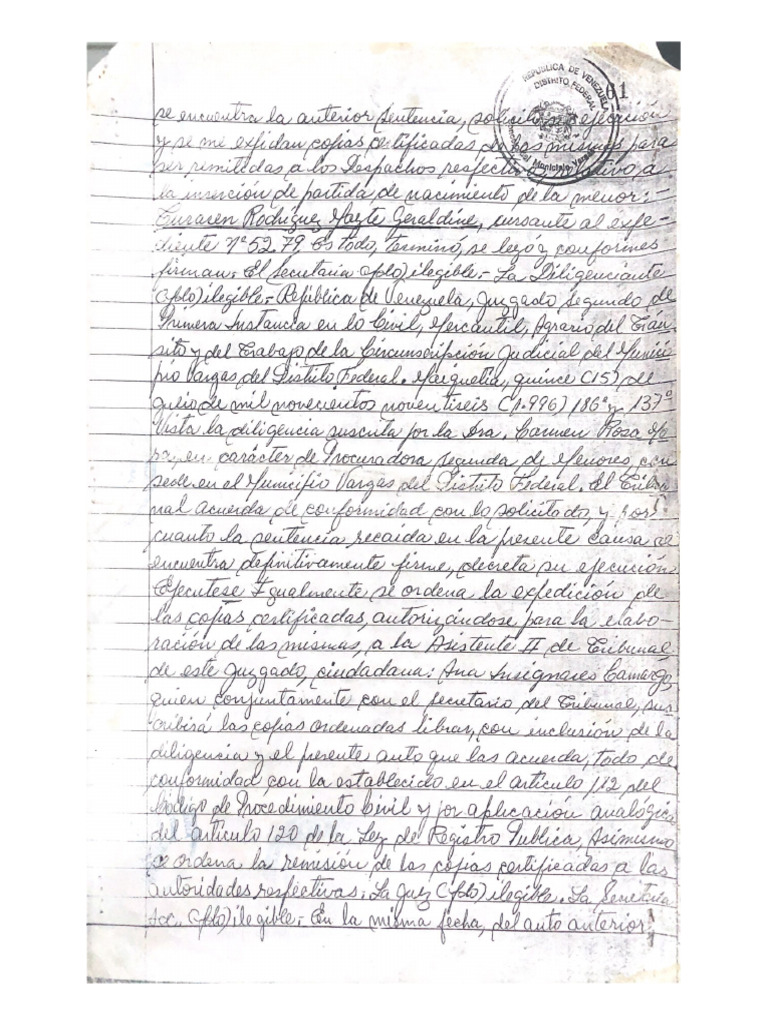 REPUBLICA DE VENEZUELA
DISTRITO FEDERAL
61
se encuentra la anterior sentencia, solicito su ejecución
y se me expidan copias certificadas de las mismas para
ser remitidas a los Despachos respectivos relativo a
la inserción de partida de nacimiento de la menor:-
Curasen Rodríguez Mayte Geraldine, cursante al expe-
diente Nº 5279, Es todo, terminó, se leyó y conformes
firman: El Secretaria (fdo) ilegible.- La Diligenciante
(fdo) ilegible.- República de Venezuela, Juzgado Segundo de
Primera Instancia en lo Civil, Mercantil, Agrario del Trán-
sito y del Trabajo de la Circunscripción Judicial del Munici-
pio Vargas del Distrito Federal. Maiquetía, quince (15) de
de mil novecientos noventiseis (1.996) 186º y 137º
Vista la diligencia suscrita por la Dra, Carmen Rosa
en carácter de Procuradora Segunda de Menores, con
sede en el Municipio Vargas del Distrito Federal. El Tribu-
nal acuerda de conformidad con lo solicitado, y por
cuanto la sentencia recaida en la presente causa se
encuentra definitivamente firme, decreta su ejecución
Ejecutese Igualmente se ordena la expedición de
las copias certificadas, autorizándose para la elabo-
ración de las mismas, a la Asistente II de Tribunal
de este Juzgado, ciudadana: Ana Insignares Camargo,
quien conjuntamente con el secretario del Tribunal, sus-
cribirá las copias ordenadas librar, con inclusión de la
diligencia y el presente auto que las acuerda, todo de
conformidad con la establecido en el articulo 112 del
Código de Procedimiento Civil y por aplicación analógica
del articulo 120 de la Ley de Registro Publica, Asimismo
se ordena la remisión de las copias certificadas a las
autoridades respectivas. La Juez (fdo) ilegible. La Secretaria
Acc. (fdo) ilegible.- En la misma fecha, del auto anterior